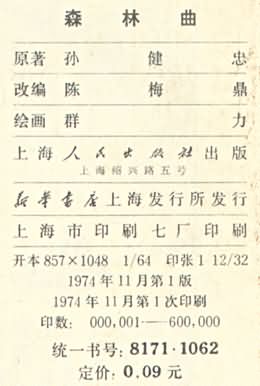 森林曲
原著 孙健忠
改编 陈梅鼎
绘画 群力
上海人民出版社出版
上海绍兴路五号
新华书店上海发行所发行
上海市印刷七厂印刷
开本 857×1048 1/64 印张 1 12/32
1974年11月第1版
1974年11月第1次印刷
印数: 000,001—600,000
统一书号: 8171·1062
定价: 0.09 元